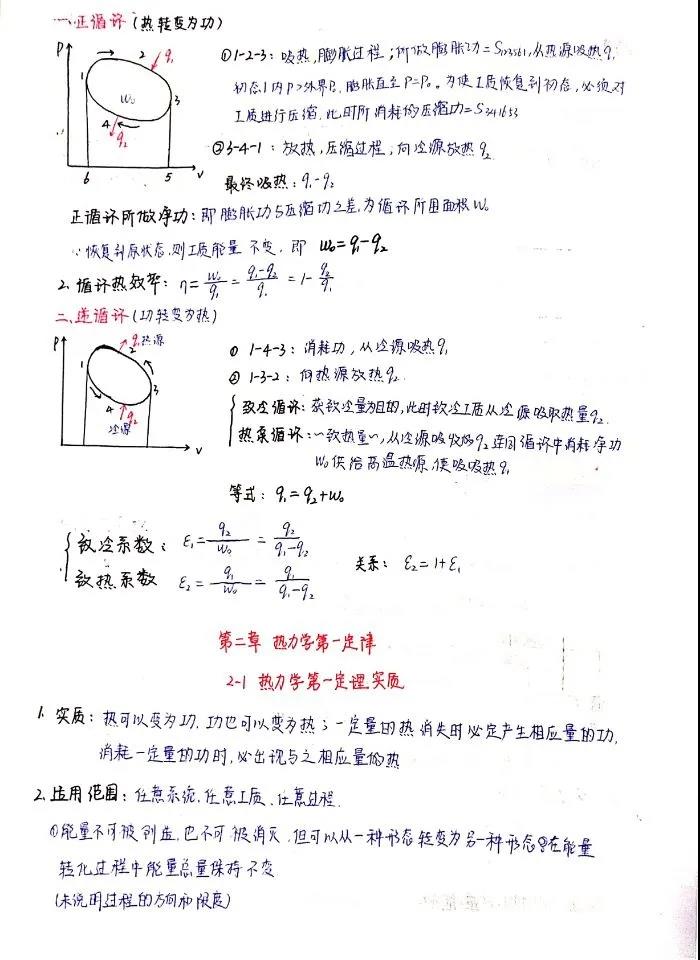 一.正循环(热转变为功)
P
1
2
q₁
3
W₀
4
q₂
6
5
V
①1-2-3:吸热,膨胀过程;所做膨胀功=S₁₂₃₅₆₁,从热源吸热q₁
初态1内P>外界P₀,膨胀直至P=P₀。为使工质恢复到初态,必须对
工质进行压缩,此时所消耗的压缩功=S₃₄₁₆₅₃
②3-4-1:放热,压缩过程,向冷源放热q₂
最终吸热:q₁-q₂
正循环所做净功:即膨胀功与压缩功之差,为循环所围面积W₀
∵恢复到原状态,则工质能量不变,即 W₀=q₁-q₂
2.循环热效率:η=W₀/q₁=(q₁-q₂)/q₁=1-q₂/q₁
二.逆循环(功转变为热)
P
q₁热源
1
2
3
4
q₂
冷源
V
① 1-4-3:消耗功,从冷源吸热q₁
② 1-3-2:向热源放热q₂
制冷循环:获致冷量为目的,此时致冷工质从冷源吸取热量q₂.
热泵循环:~致热量~,从冷源吸收的q₂连同循环中消耗净功
W₀供给高温热源,使吸吸热q₁
等式:q₁=q₂+W₀
致冷系数:ε₁=q₂/W₀=q₂/(q₁-q₂)
致热系数 ε₂=q₁/W₀=q₁/(q₁-q₂)
关系:ε₂=1+ε₁
第二章 热力学第一定律
2-1 热力学第一定理实质
1.实质:热可以变为功,功也可以变为热;一定量的热消失时必定产生相应量的功,
消耗一定量的功时,必出现与之相应量的热
2.应用范围:任意系统,任意工质,任意过程.
①能量不可被创造,也不可被消灭,但可以从一种形态转变为另一种形态②在能量
转化过程中能量总量保持不变
(未说明过程的方向和限度)